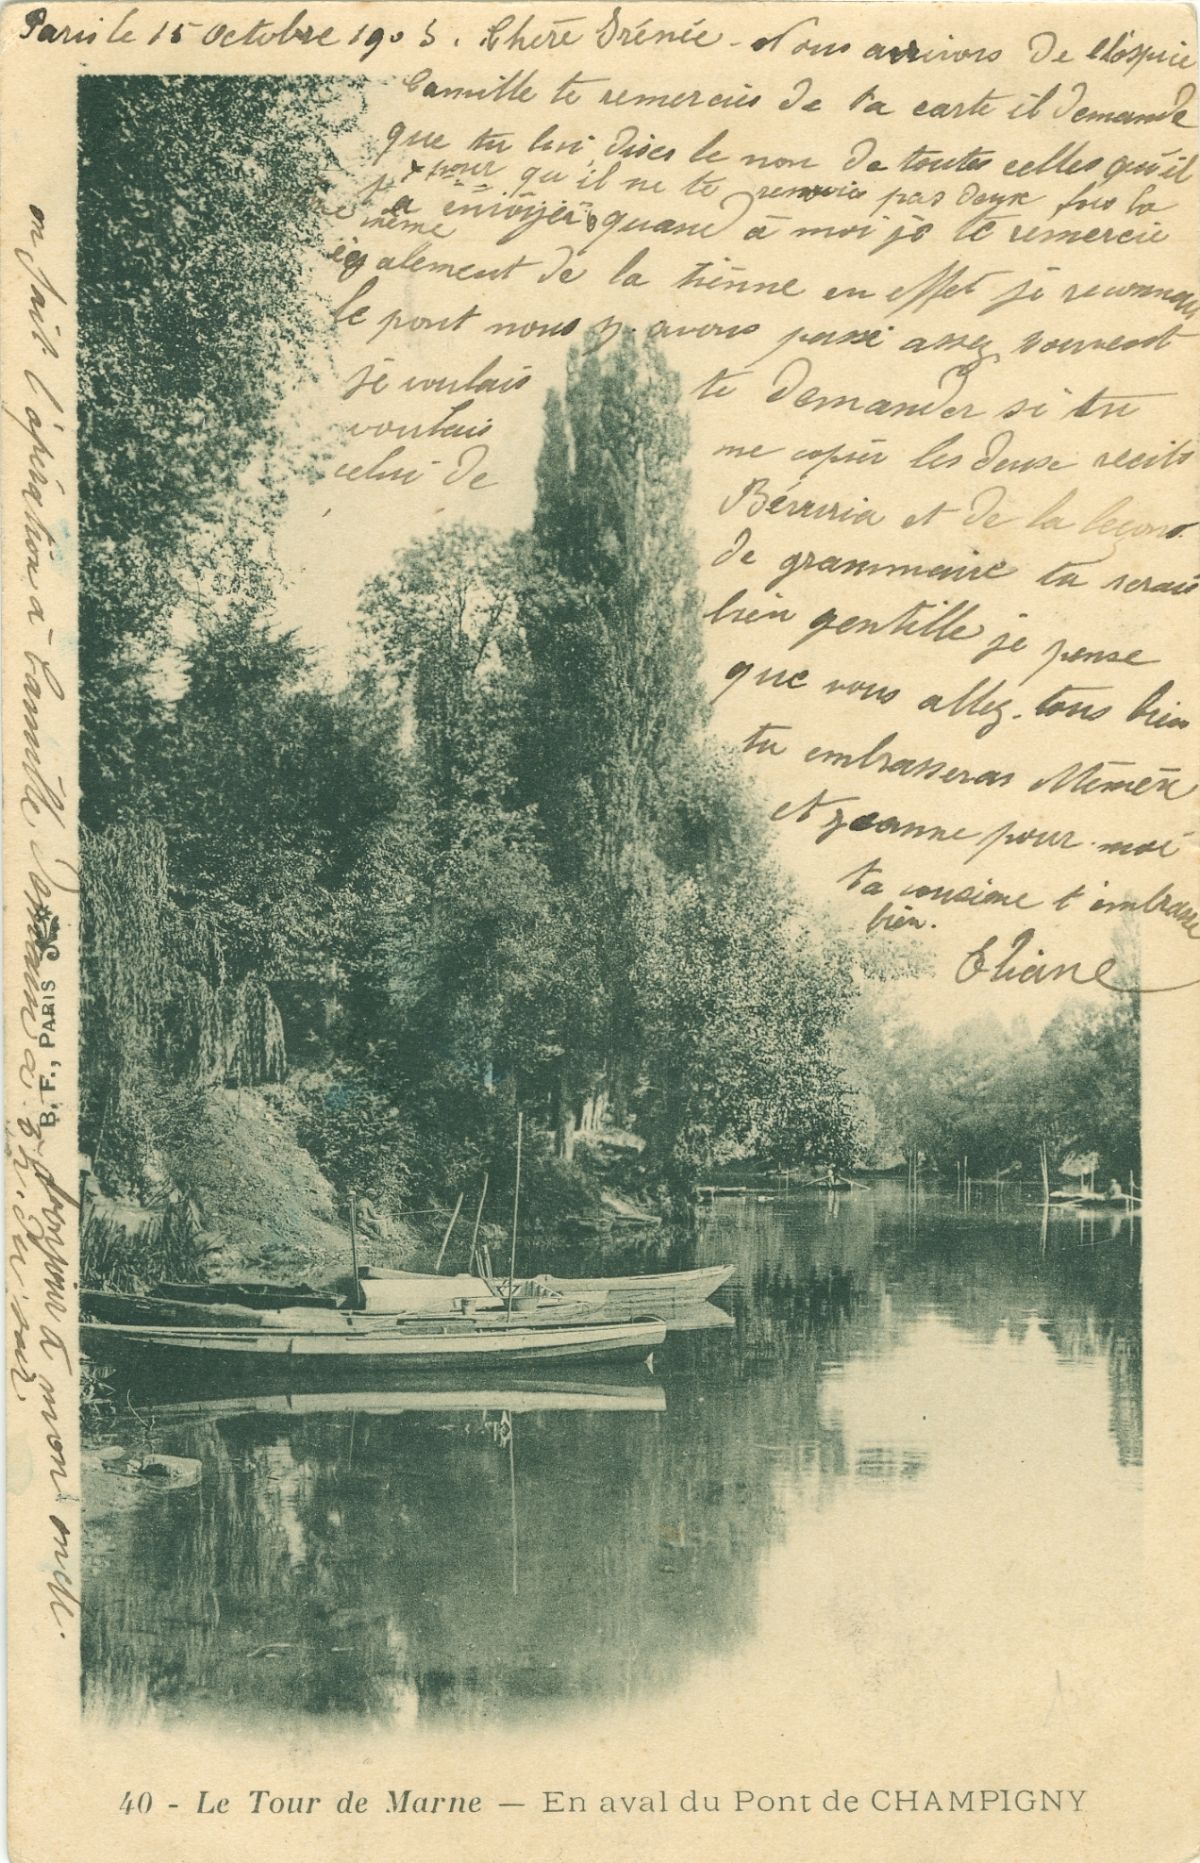 Paris le 15 Octobre 1905. Chère Irénée - Nous arrivons de l'hospice
Camille te remercies de ta carte il demande
que tu lui dises le nom de toutes celles qu'il
pour qu'il ne te renvoie pas deux fois la
même
a envoyer quand à moi je te remercie
également de la tienne en effet je reconnais
le pont nous y avons passé assez souvent
je voulais te demander si tu
voulais me copier les deux recits
celui de et de la leçons
de grammaire tu serais
bien gentille je pense
que vous allez tous bien
tu embrasseras Mémère
et Jeanne pour moi
ta cousine t'embrasse
bien.
Eliane
on fait l'opération à Camille Demain
à mon oncle.
B. F., PARIS
40 - Le Tour de Marne — En aval du Pont de CHAMPIGNY